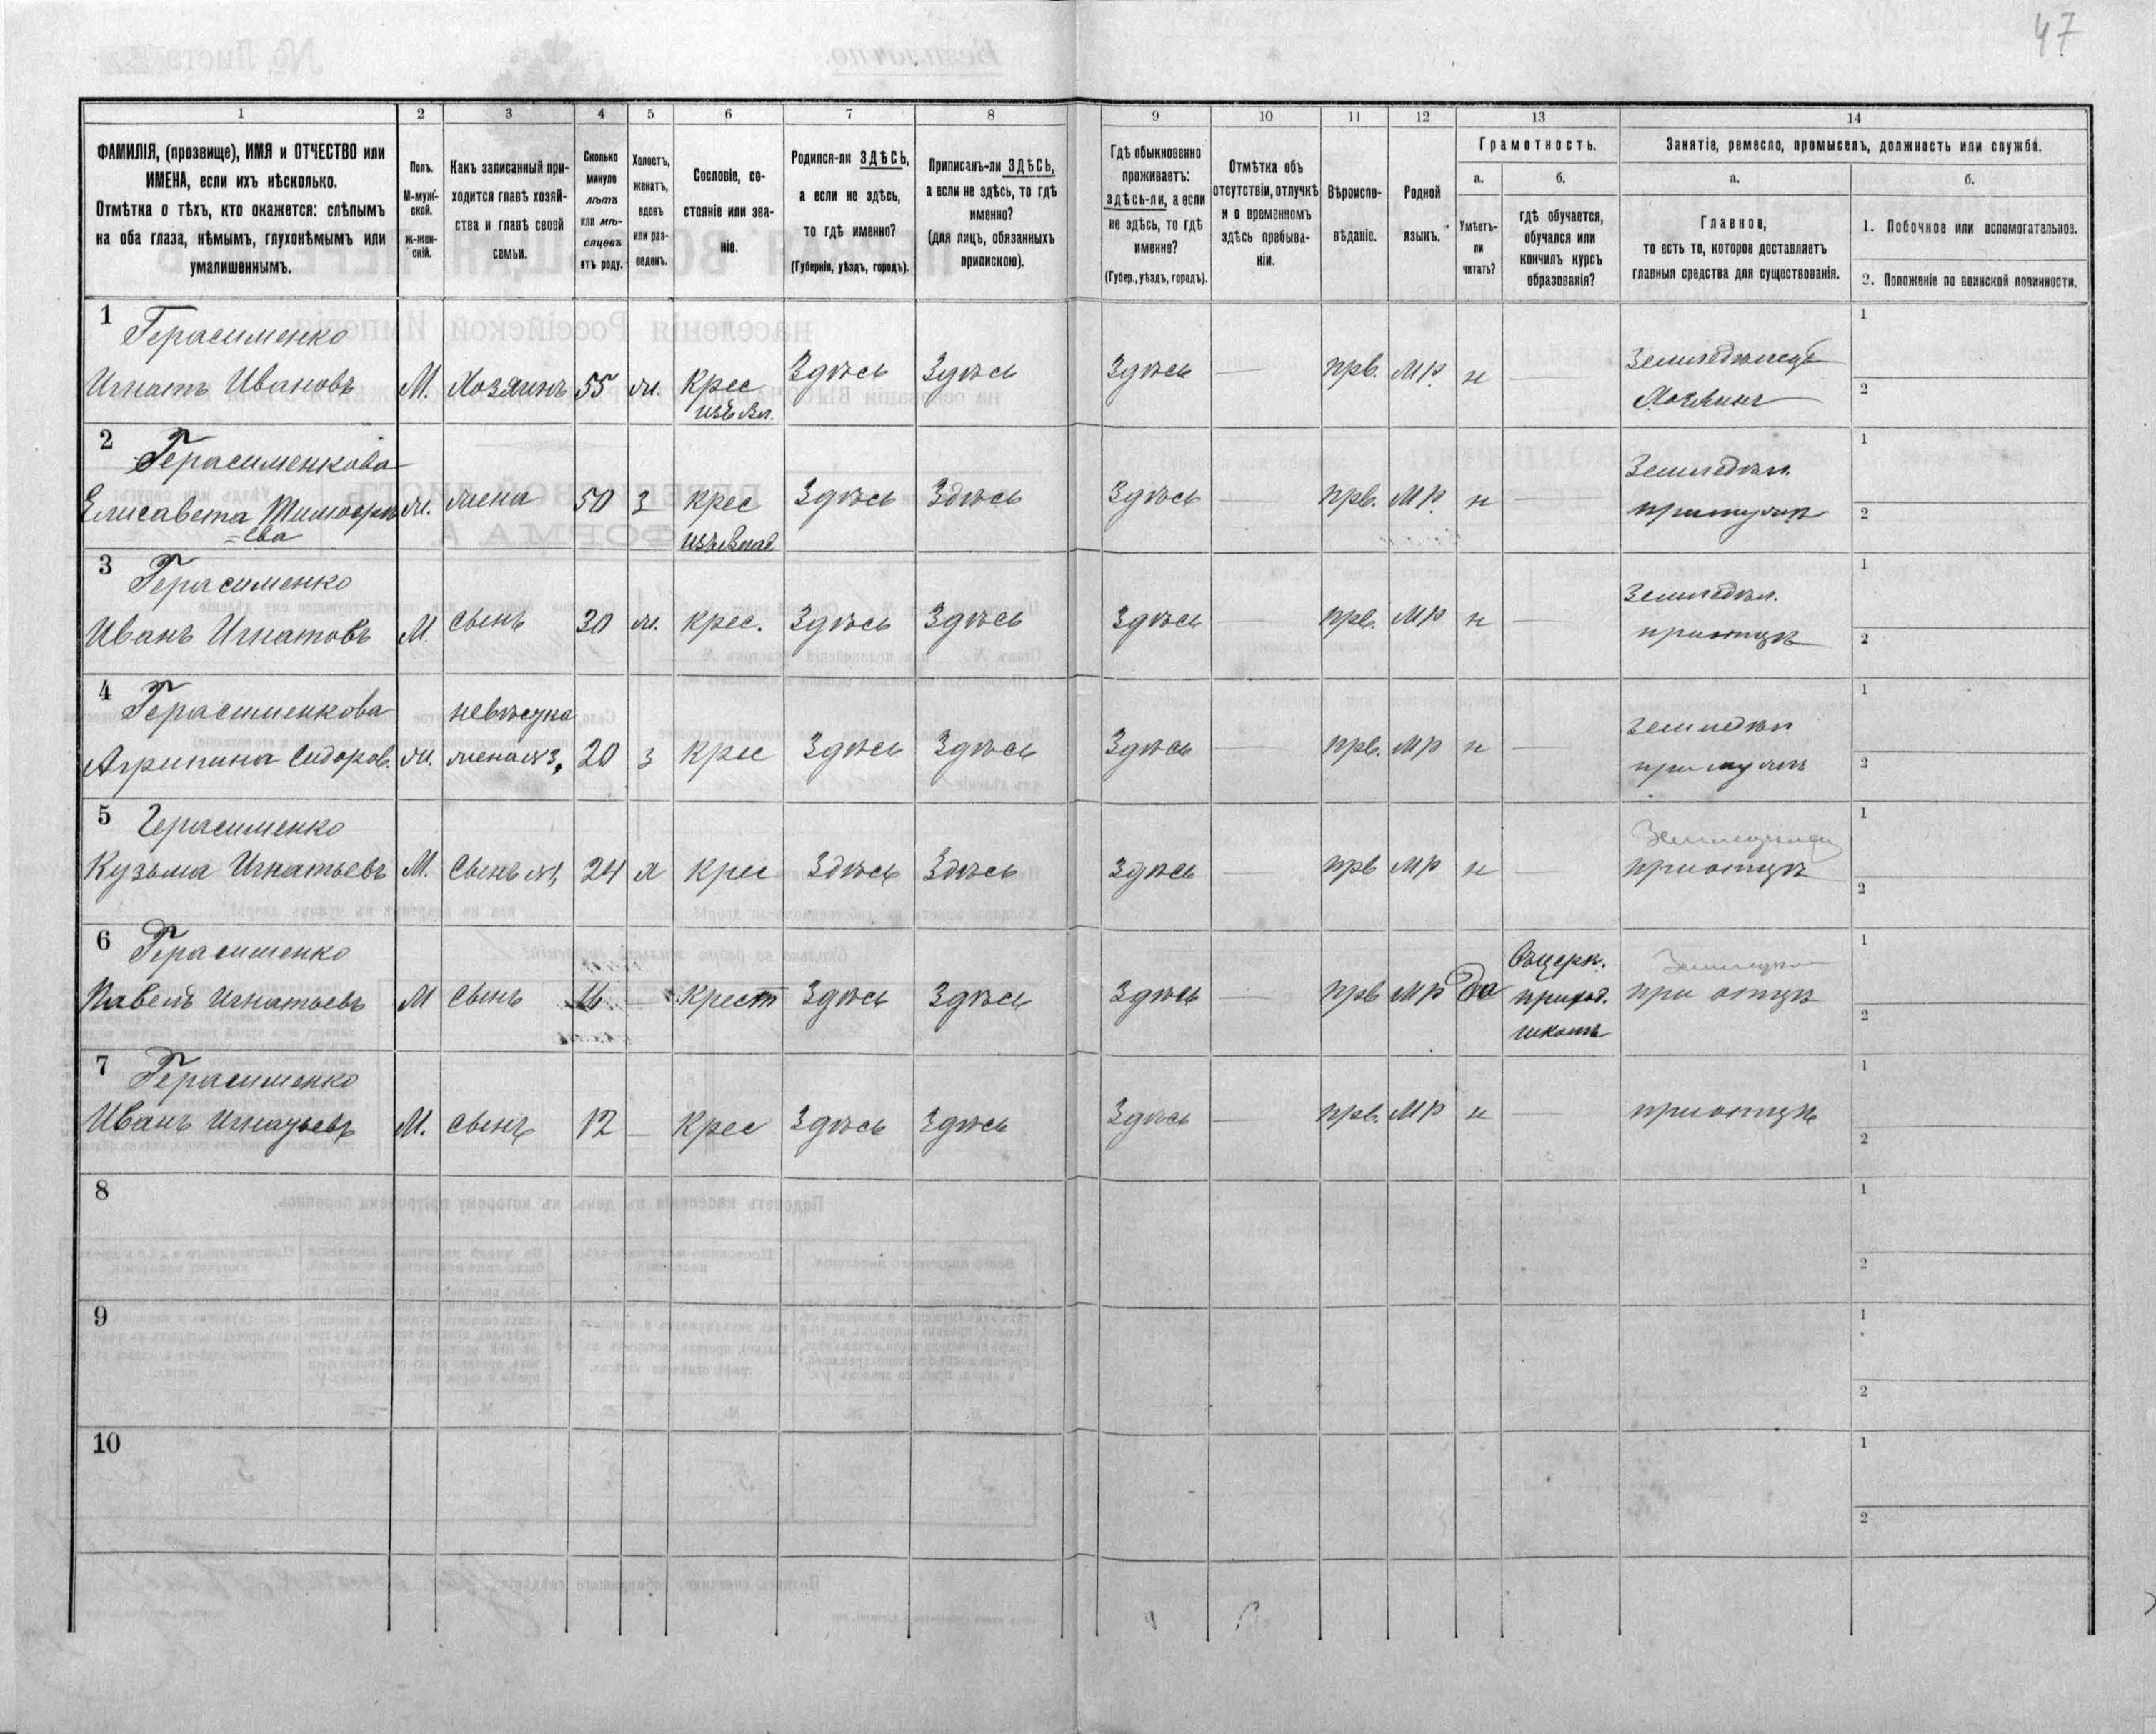 47
1
2
3
4
5
6
7
8
9
10
11
12
13
14
ФАМИЛІЯ, (прозвище), ИМЯ и ОТЧЕСТВО или
ИМЕНА, если ихъ нѣсколько.
Отмѣтка о тѣхъ, кто окажется: слѣпымъ
на оба глаза, нѣмымъ, глухонѣмымъ или
умалишеннымъ.
Полъ.
М-муж-
ской.
Ж-жен-
скій.
Какъ записанный при-
ходится главѣ хозяй-
ства и главѣ своей
семьи.
Сколько
минуло
лѣтъ
или мѣ-
сяцевъ
отъ роду.
Холостъ,
женатъ,
вдовъ
или раз-
веденъ.
Сословіе, со-
стояніе или зва-
ніе.
Родился-ли ЗДѢСЬ,
а если не здѣсь,
то гдѣ именно?
(Губернія, уѣздъ, городъ).
Приписанъ-ли ЗДѢСЬ,
а если не здѣсь, то гдѣ
именно?
(для лицъ, обязанныхъ
припискою).
Гдѣ обыкновенно
проживаетъ:
здѣсь-ли, а если
не здѣсь, то гдѣ
именно?
(Губер., уѣздъ, городъ).
Отмѣтка объ
отсутствіи, отлучкѣ
и о временномъ
здѣсь пребыва-
ніи.
Вѣроиспо-
вѣданіе.
Родной
языкъ.
Грамотность.
а.
Умѣетъ-
ли
читать?
б.
гдѣ обучается,
обучался или
кончилъ курсъ
образованія?
Занятіе, ремесло, промыселъ, должность или служба.
а.
Главное,
то есть то, которое доставляетъ
главныя средства для существованія.
б.
1. Побочное или вспомогательное.
2. Положеніе по воинской повинности.
1 Герасименко
Игнатъ Ивановъ М. Хозяинъ 55 ж. Крес Здѣсь Здѣсь Здѣсь — прв. мр. н —
изъ вл.
Хозяинъ
1
2
2 Герасименкова
Елисавета Тимоѳе ж. жена 50 з Крес Здѣсь Здѣсь Здѣсь — прв. мр. н —
=ева
Земледѣл.
при мужѣ
1
2
3 Герасименко
Иванъ Игнатовъ М. сынъ 30 ж. крес. Здѣсь Здѣсь Здѣсь — прв. мр н —
Земледѣл.
при отцѣ
1
2
4 Герасименкова невѣстка
Агрипина Сидоров. ж. жена №3, 20 з Крес Здѣсь Здѣсь Здѣсь — прв. мр н —
земледѣл
при мужѣ
1
2
5 Герасименко
Кузьма Игнатьевъ М. сынъ №1, 24 х Крес Здѣсь Здѣсь Здѣсь — прв мр н —
при отцѣ
1
2
6 Герасименко
Павелъ Игнатьевъ М сынъ 16 — Крест Здѣсь Здѣсь Здѣсь — прв мр да
Въ церк.
приход.
школѣ
при отцѣ
1
2
7 Герасименко
Иванъ Игнатьевъ М. сынъ 12 — Крес Здѣсь Здѣсь Здѣсь — прв. мр н — при отцѣ
1
2
8
1
2
9
1
2
10
1
2